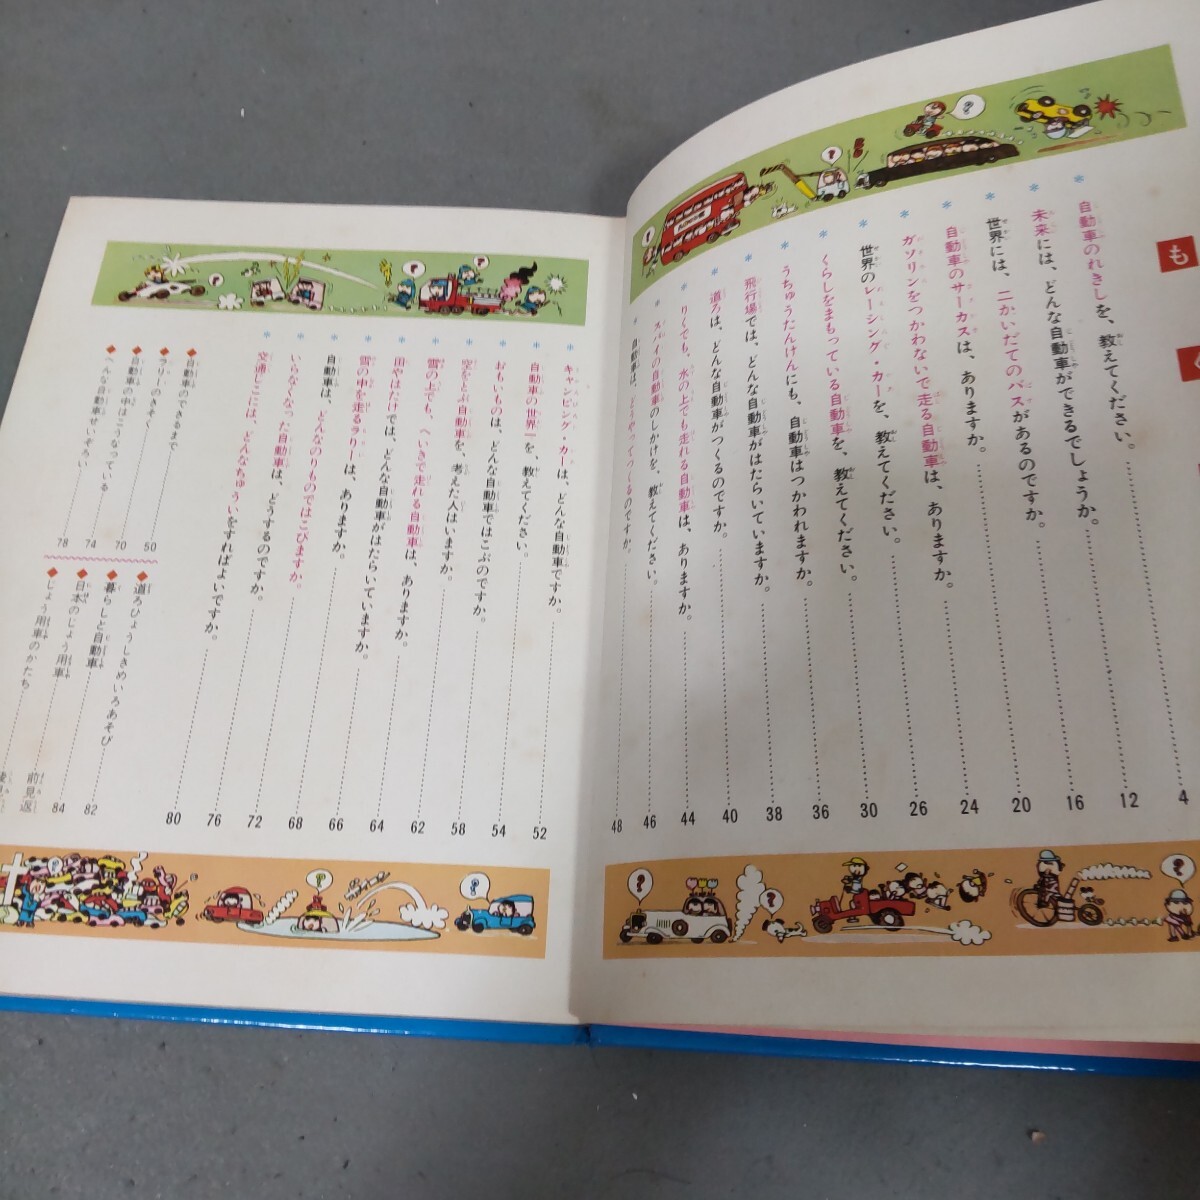 も
く
自動車のれきしを、教えてください。 4
未来には、どんな自動車ができるでしょうか。 12
世界には、二かいだてのバスがあるのですか。 16
自動車のサーカスは、ありますか。 20
ガソリンをつかわないで走る自動車は、ありますか。 24
世界のレーシング・カーを、教えてください。 26
くらしをまもっている自動車を、教えてください。 30
うちゅうたんけんにも、自動車はつかわれますか。 34
飛行場では、どんな自動車がはたらいていますか。 38
道ろは、どんな自動車がつくるのですか。 40
りくでも、水の上でも走れる自動車は、ありますか。 44
スパイの自動車のしかけを、教えてください。 46
自動車は、どうやってつくるのですか。 48
キャンピング・カーは、どんな自動車ですか。 52
自動車の世界一を、教えてください。 54
おもいものは、どんな自動車ではこぶのですか。 58
空をとぶ自動車を、考えた人はいますか。 62
雪の上でも、へいきで走れる自動車は、ありますか。 64
田やはたけでは、どんな自動車がはたらいていますか。 66
雪の中を走るラリーは、ありますか。 68
自動車は、どんなのりものではこびますか。 72
いらなくなった自動車は、どうするのですか。 76
交通じこには、どんなちゅういをすればよいですか。 80
◆自動車のできるまで 50
◆ラリーのきそく 70
◆自動車の中はこうなっている 74
◆へんな自動車せいぞろい 78
◆道ろひょうしきめいろあそび 82
◆暮らしと自動車 84
◆日本のじょう用車 前見返し
◆じょう用車のかたち